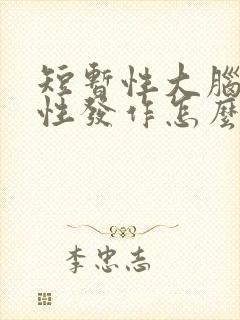 短暫性大腦
性發作怎麼
李忠志